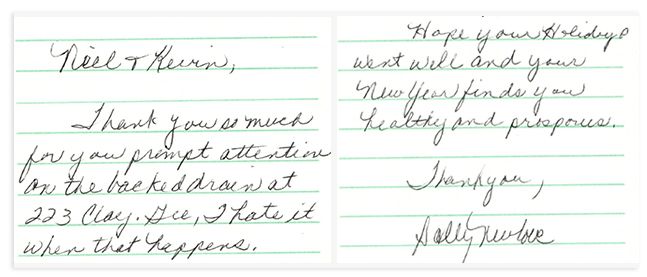 Niel & Kevin,
Thank you so much
for you prompt attention
on the backed drain at
223 Clay. Gee, I hate it
when that happens.
Hope your Holidays
went well and your
New Year finds you
healthy and prosporus.
Thank you,
Sally